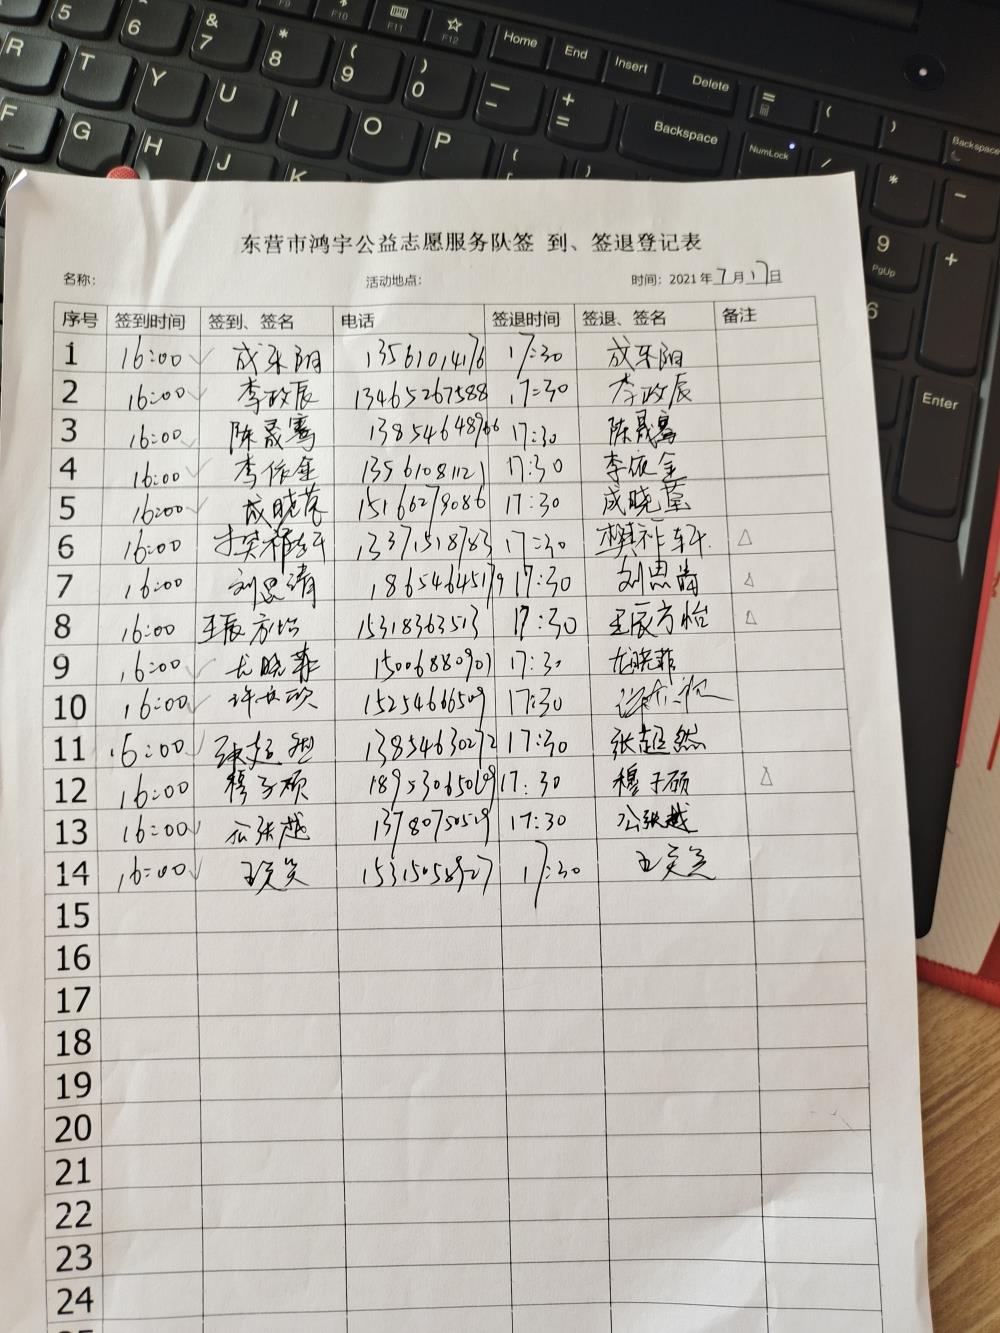 5 6 & 7 * 8 ( 9 ) 0 — + =
F10 F11 F12 Home End Insert Delete = ( ) Backspace
R T Y U I O P Backspace NumLock / * −
F G H J K 9 PgUp + 6 Enter
东营市鸿宇公益志愿服务队签 到、签退登记表
名称: 活动地点: 时间: 2021年7月17日
序号 签到时间 签到、签名 电话 签退时间 签退、签名 备注
1 16:00 ✓ 成乐阳 13561014176 17:30 成乐阳
2 16:00 ✓ 李政辰 13465267588 17:30 李政辰
3 16:00 ✓ 陈晟骞 17:30 陈晟骞
4 16:00 ✓ 李依金 13561081121 17:30 李依金
5 16:00 ✓ 成晓莹 15166273086 17:30 成晓莹
6 16:00 ✓ 13371518783 17:30 △
7 16:00 ✓ 刘思清 18654645179 17:30 刘思清 △
8 16:00 王辰方怡 15318363513 17:30 王辰方怡 △
9 16:00 ✓ 尤晓菲 15006880901 17:30 尤晓菲
10 16:00 ✓ 15254666509 17:30
11 16:00 ✓ 张超然 13854630272 17:30 张超然
12 16:00 ✓ 穆子硕 17:30 穆子硕 △
13 16:00 ✓ 公张越 13780750519 17:30 公张越
14 16:00 ✓ 15315058927 17:30
15
16
17
18
19
20
21
22
23
24